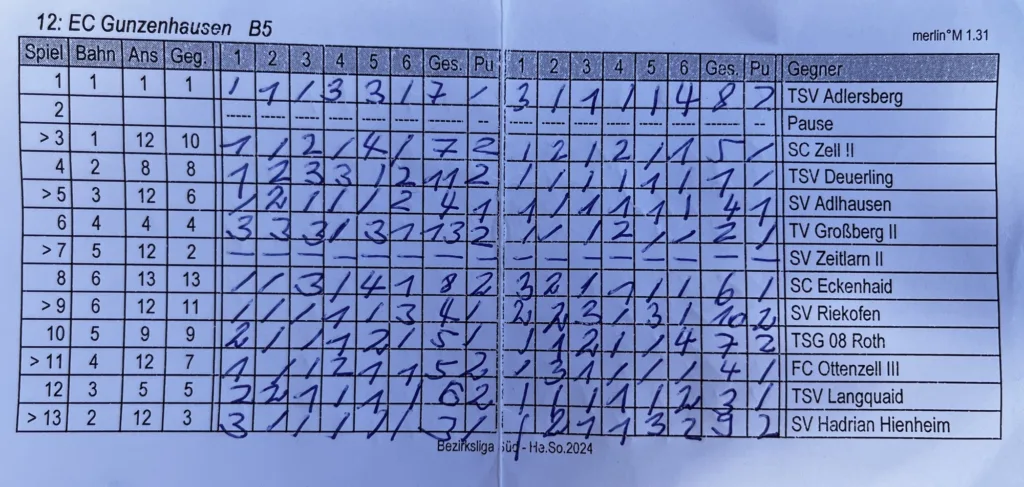 12: EC Gunzenhausen B5
merlin°M 1.31
Spiel Bahn Ans Geg. 1 2 3 4 5 6 Ges. Pu 1 2 3 4 5 6 Ges. Pu Gegner
1 1 1 1 / 1 / 3 3 / 7 / 3 / 1 / / 4 8 2 TSV Adlersberg
2 ----- ----- ----- ----- ----- ----- ------ -- ----- ----- ----- ----- ----- ----- ------ -- Pause
> 3 1 12 10 1 / 2 / 4 / 7 2 / 2 / 2 / 1 5 / SC Zell II
4 2 8 8 1 2 3 3 / 2 11 2 / / / / 1 / 1 / TSV Deuerling
> 5 3 12 6 / 2 / / / 2 4 1 1 / 1 1 1 / 4 1 SV Adlhausen
6 4 4 4 3 3 3 / 3 1 13 2 / / / 2 / / 2 / TV Großberg II
> 7 5 12 2 — — — — — — — — — — — — — — — — SV Zeitlarn II
8 6 13 13 / / 3 / 4 1 8 2 3 2 1 / / / 6 / SC Eckenhaid
> 9 6 12 11 / / / 1 / 3 4 / 2 2 3 / 3 / 10 2 SV Riekofen
10 5 9 9 2 / / 1 2 / 5 / / 1 2 / / 4 7 2 TSG 08 Roth
> 11 4 12 7 1 / / 2 1 1 5 2 / 3 1 / / / 4 / FC Ottenzell III
12 3 5 5 2 2 1 / 1 / 6 2 / / / 1 / 2 3 / TSV Langquaid
> 13 2 12 3 3 / / / / / 3 / / 2 1 1 3 2 9 2 SV Hadrian Hienheim
Bezirksliga Süd - He.So.2024